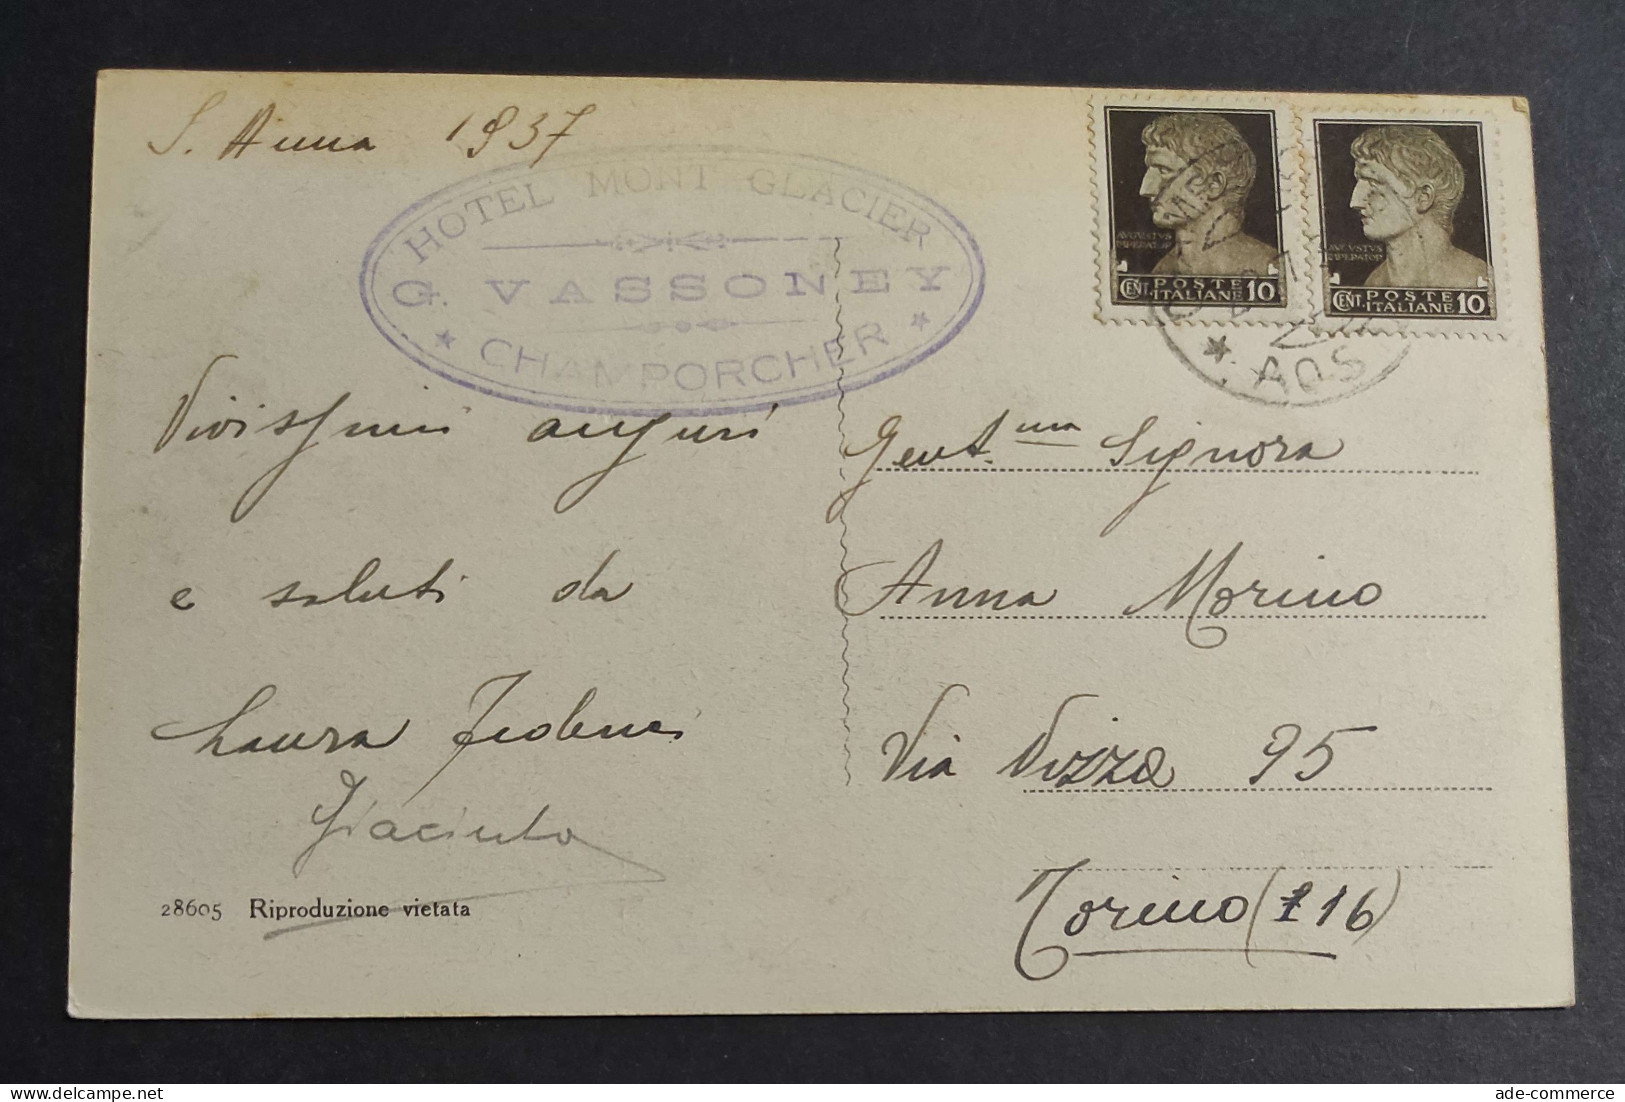 S. Anna 1937
HOTEL MONT GLACIER
G. VASSONEY
* CHAMPORCHER *
Vivissimi auguri
e saluti da
Laura
Giacinto
28605 Riproduzione vietata
AVGVSTVS
IMPERATOR
CENT. POSTE
ITALIANE 10
IMPERATOR
CENT. POSTE
ITALIANE 10
* AOS
Gent.ma Signora
Anna Morino
Via Nizza 95
Torino (116)
ade-commerce